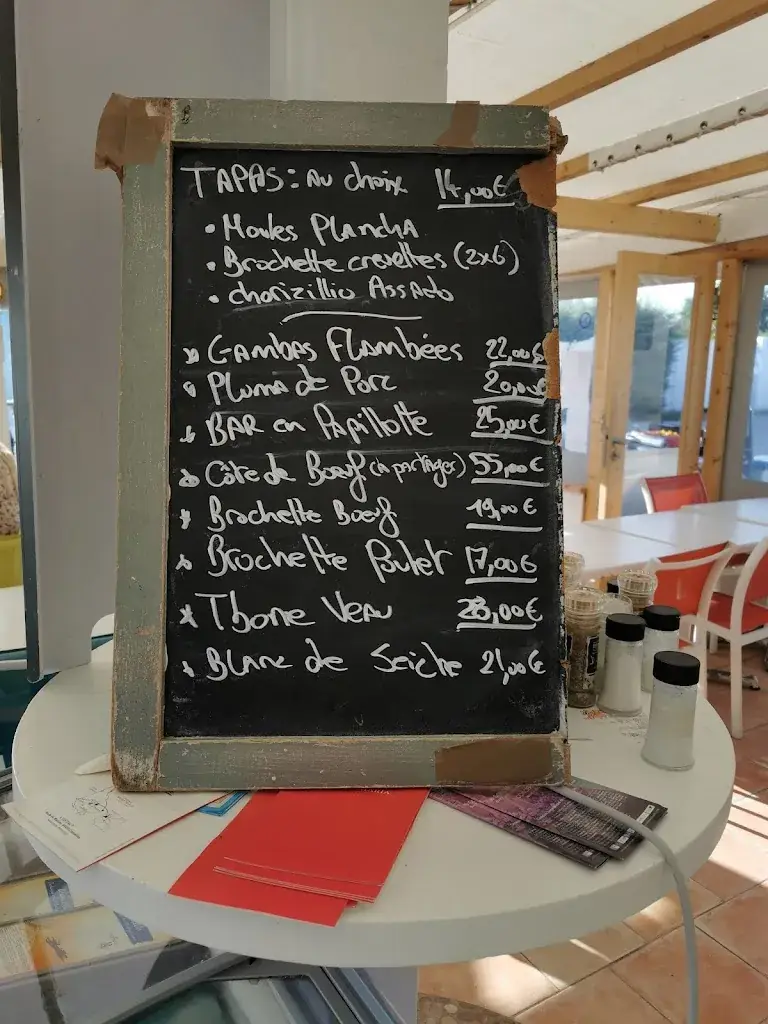 TAPAS: Au choix 14,00€
• Moules Plancha
• Brochette crevettes (2x6)
• chorizillio Assado
Gambas Flambées 22,00€
Pluma de Porc 20,00€
BAR en Papillotte 25,00€
Côte de Boeuf (à partager) 55,00€
Brochette Boeuf 19,00€
Brochette Poulet 17,00€
Tbone Veau 23,00€
Blanc de Seiche 21,00€